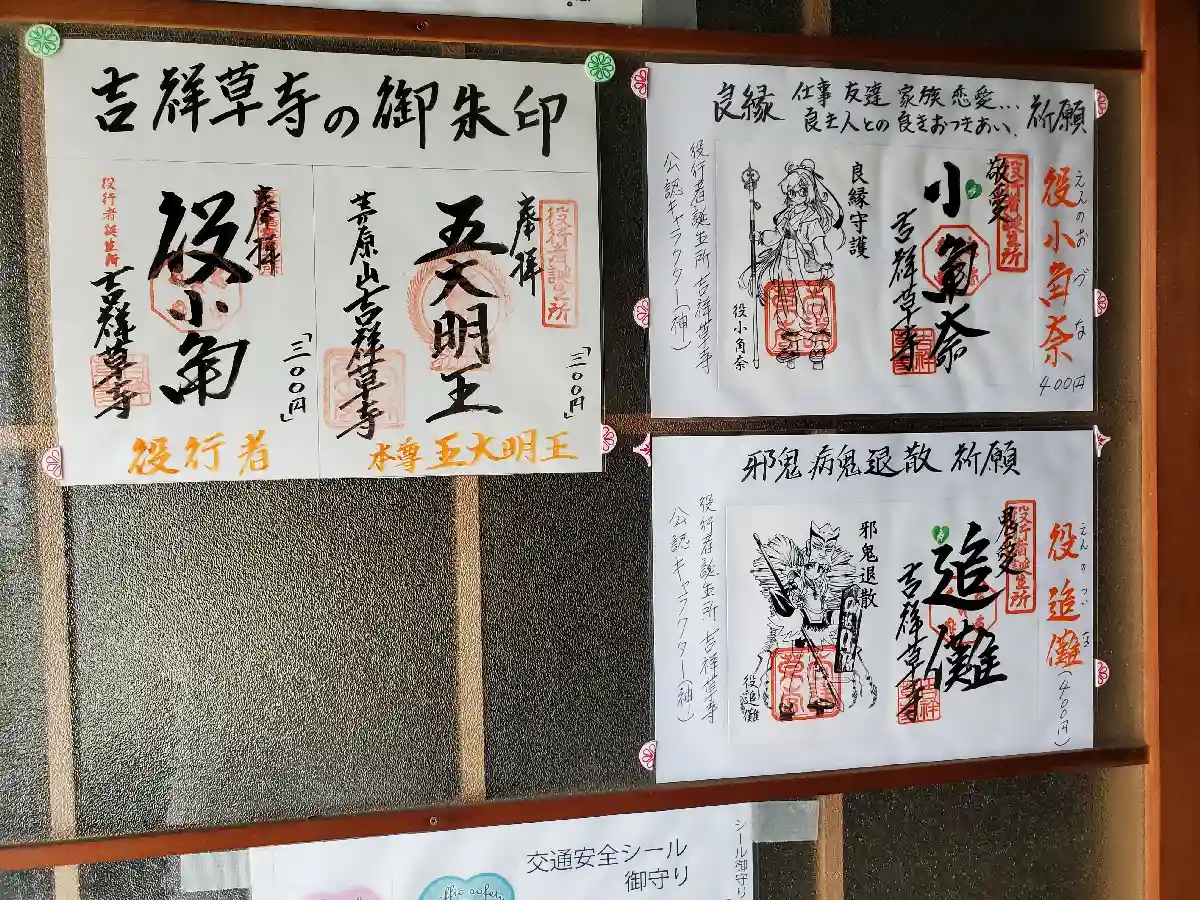 吉祥草寺の御朱印
奉拝
役行者誕生所
役小角
吉祥草寺
「三〇〇円」
役行者
奉拝
役行者誕生所
五大明王
茅原山吉祥草寺
「三〇〇円」
本尊五大明王
良縁
仕事 友達 家族 恋愛…
良き人との良きおつきあい、
祈願
役小角奈
えんのおづな
400円
敬愛
役行者誕生所
小角奈
吉祥草寺
良縁守護
役小角奈
役行者誕生所 吉祥草寺
公認キャラクター(神)
邪鬼病鬼退散 祈願
役追儺
えんのついな
(400円)
鬼愛
役行者誕生所
追儺
吉祥草寺
邪鬼退散
役追儺
役行者誕生所 吉祥草寺
公認キャラクター(神)
交通安全シール
御守り
シール御守り